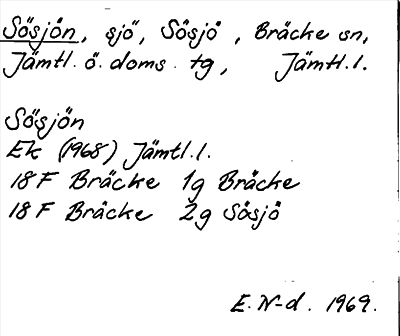 Sösjön, sjö, Sösjö, Bräcke sn,
Jämtl. ö. doms. tg, Jämtl. l.
Sösjön
Ek (1968) Jämtl. l.
18 F Bräcke 1g Bräcke
18 F Bräcke 2g Sösjö
E. N-d. 1969.